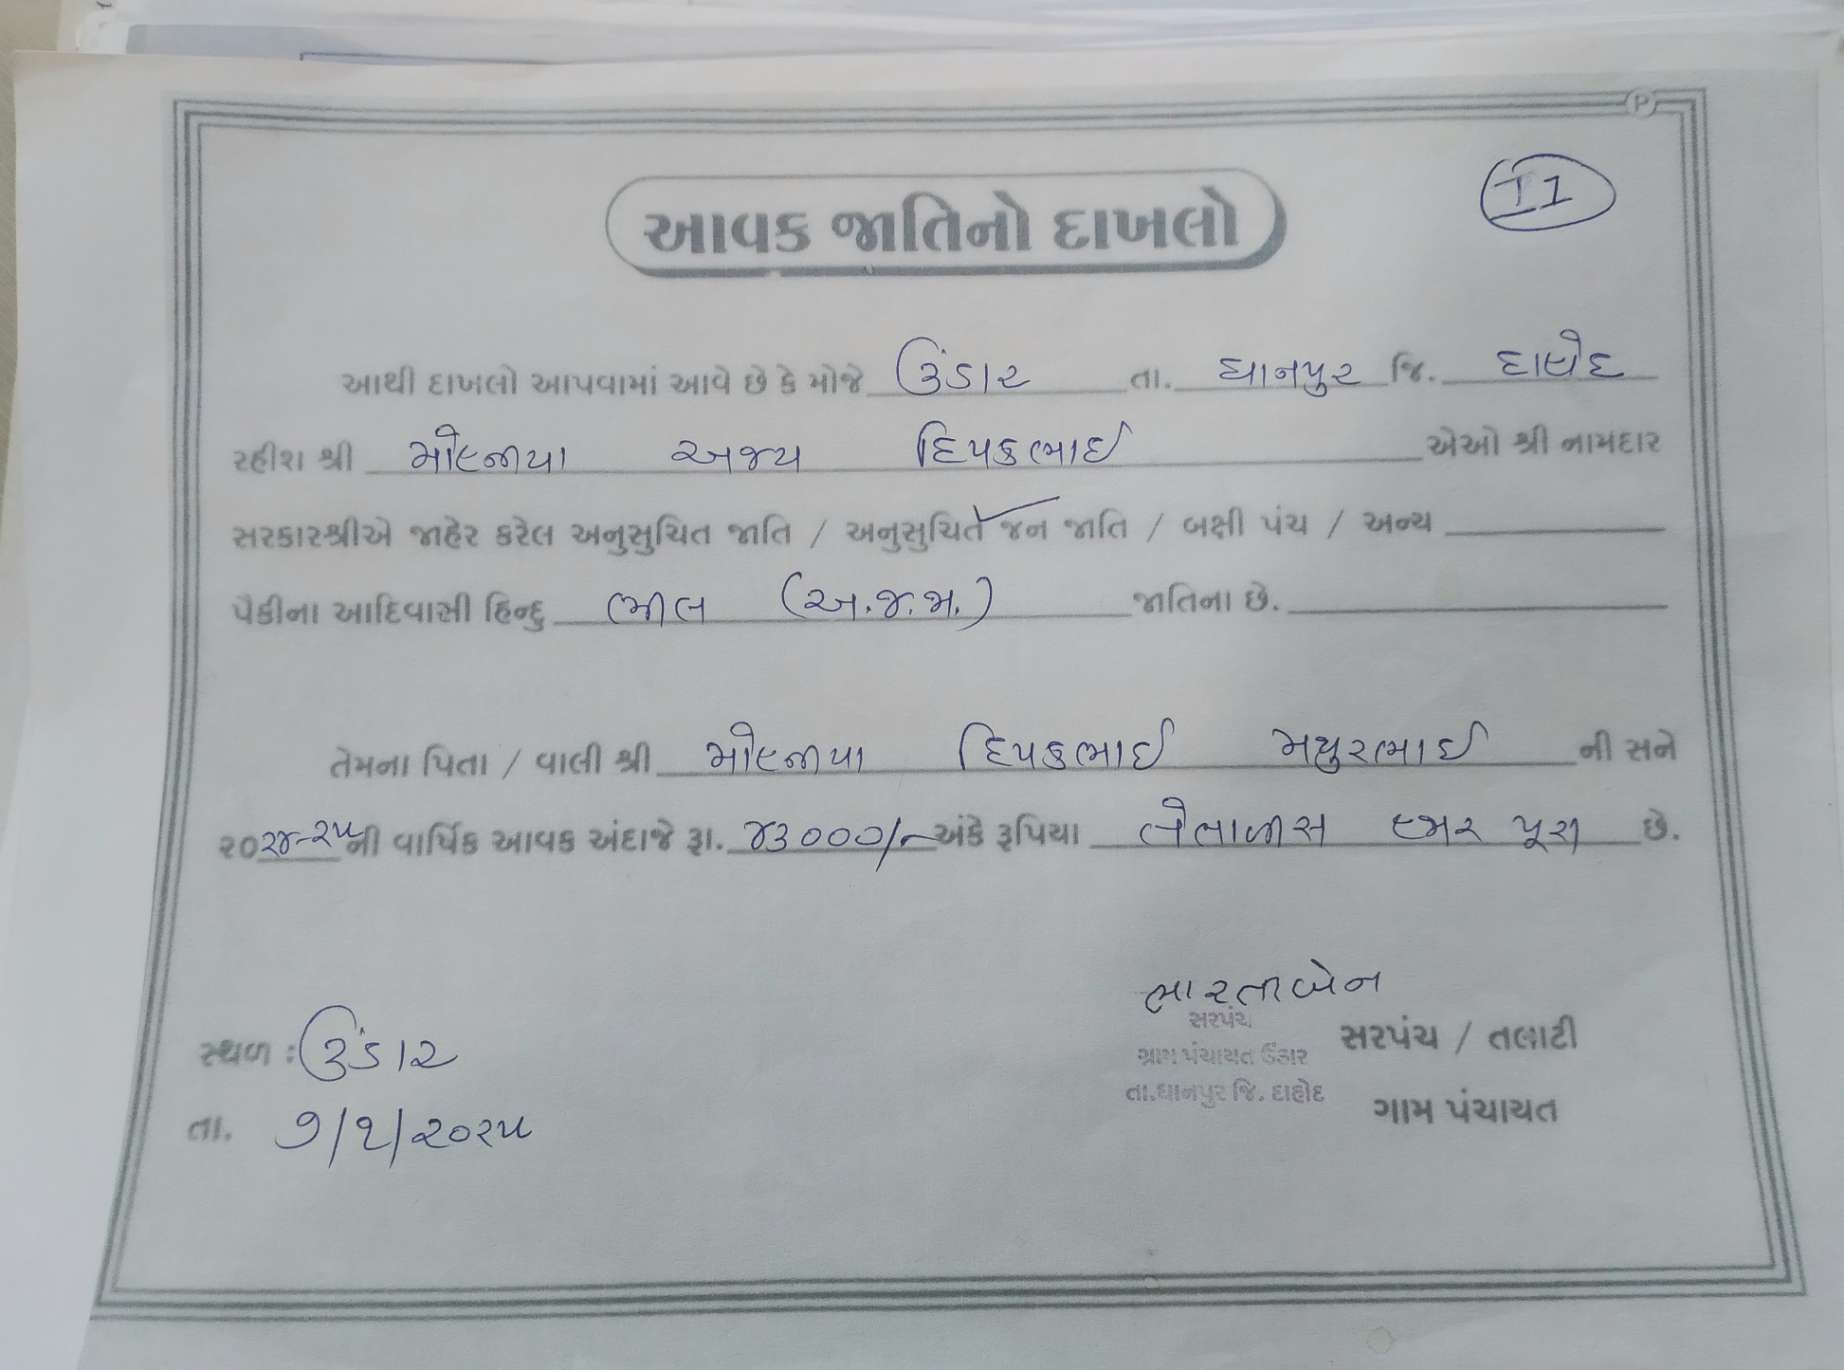 P
I1
આવક જાતિનો દાખલો
આથી દાખલો આપવામાં આવે છે કે મોજે ઉંડાર તા. ધાનપુર જિ. દાહોદ
રહીશ શ્રી મોહનીયા અજય દિપકભાઈ એઓ શ્રી નામદાર
સરકારશ્રીએ જાહેર કરેલ અનુસુચિત જાતિ / અનુસુચિત જન જાતિ / બક્ષી પંચ / અન્ય
પૈકીના આદિવાસી હિન્દુ ભીલ (અ.જ.જા.) જાતિના છે.
તેમના પિતા / વાલી શ્રી મોહનીયા દિપકભાઈ મથુરભાઈ ની સને
૨૦૨૪-૨૫ની વાર્ષિક આવક અંદાજે રૂા. ૪૩૦૦૦/- અંકે રૂપિયા તેતાળીસ હજાર પૂરા છે.
ભારતીબેન
સરપંચ
સ્થળ : ઉંડાર
સરપંચ / તલાટી
ગ્રામ પંચાયત ઉંડાર
તા.ધાનપુર જિ. દાહોદ
ગામ પંચાયત
તા. ૭/૧/૨૦૨૫